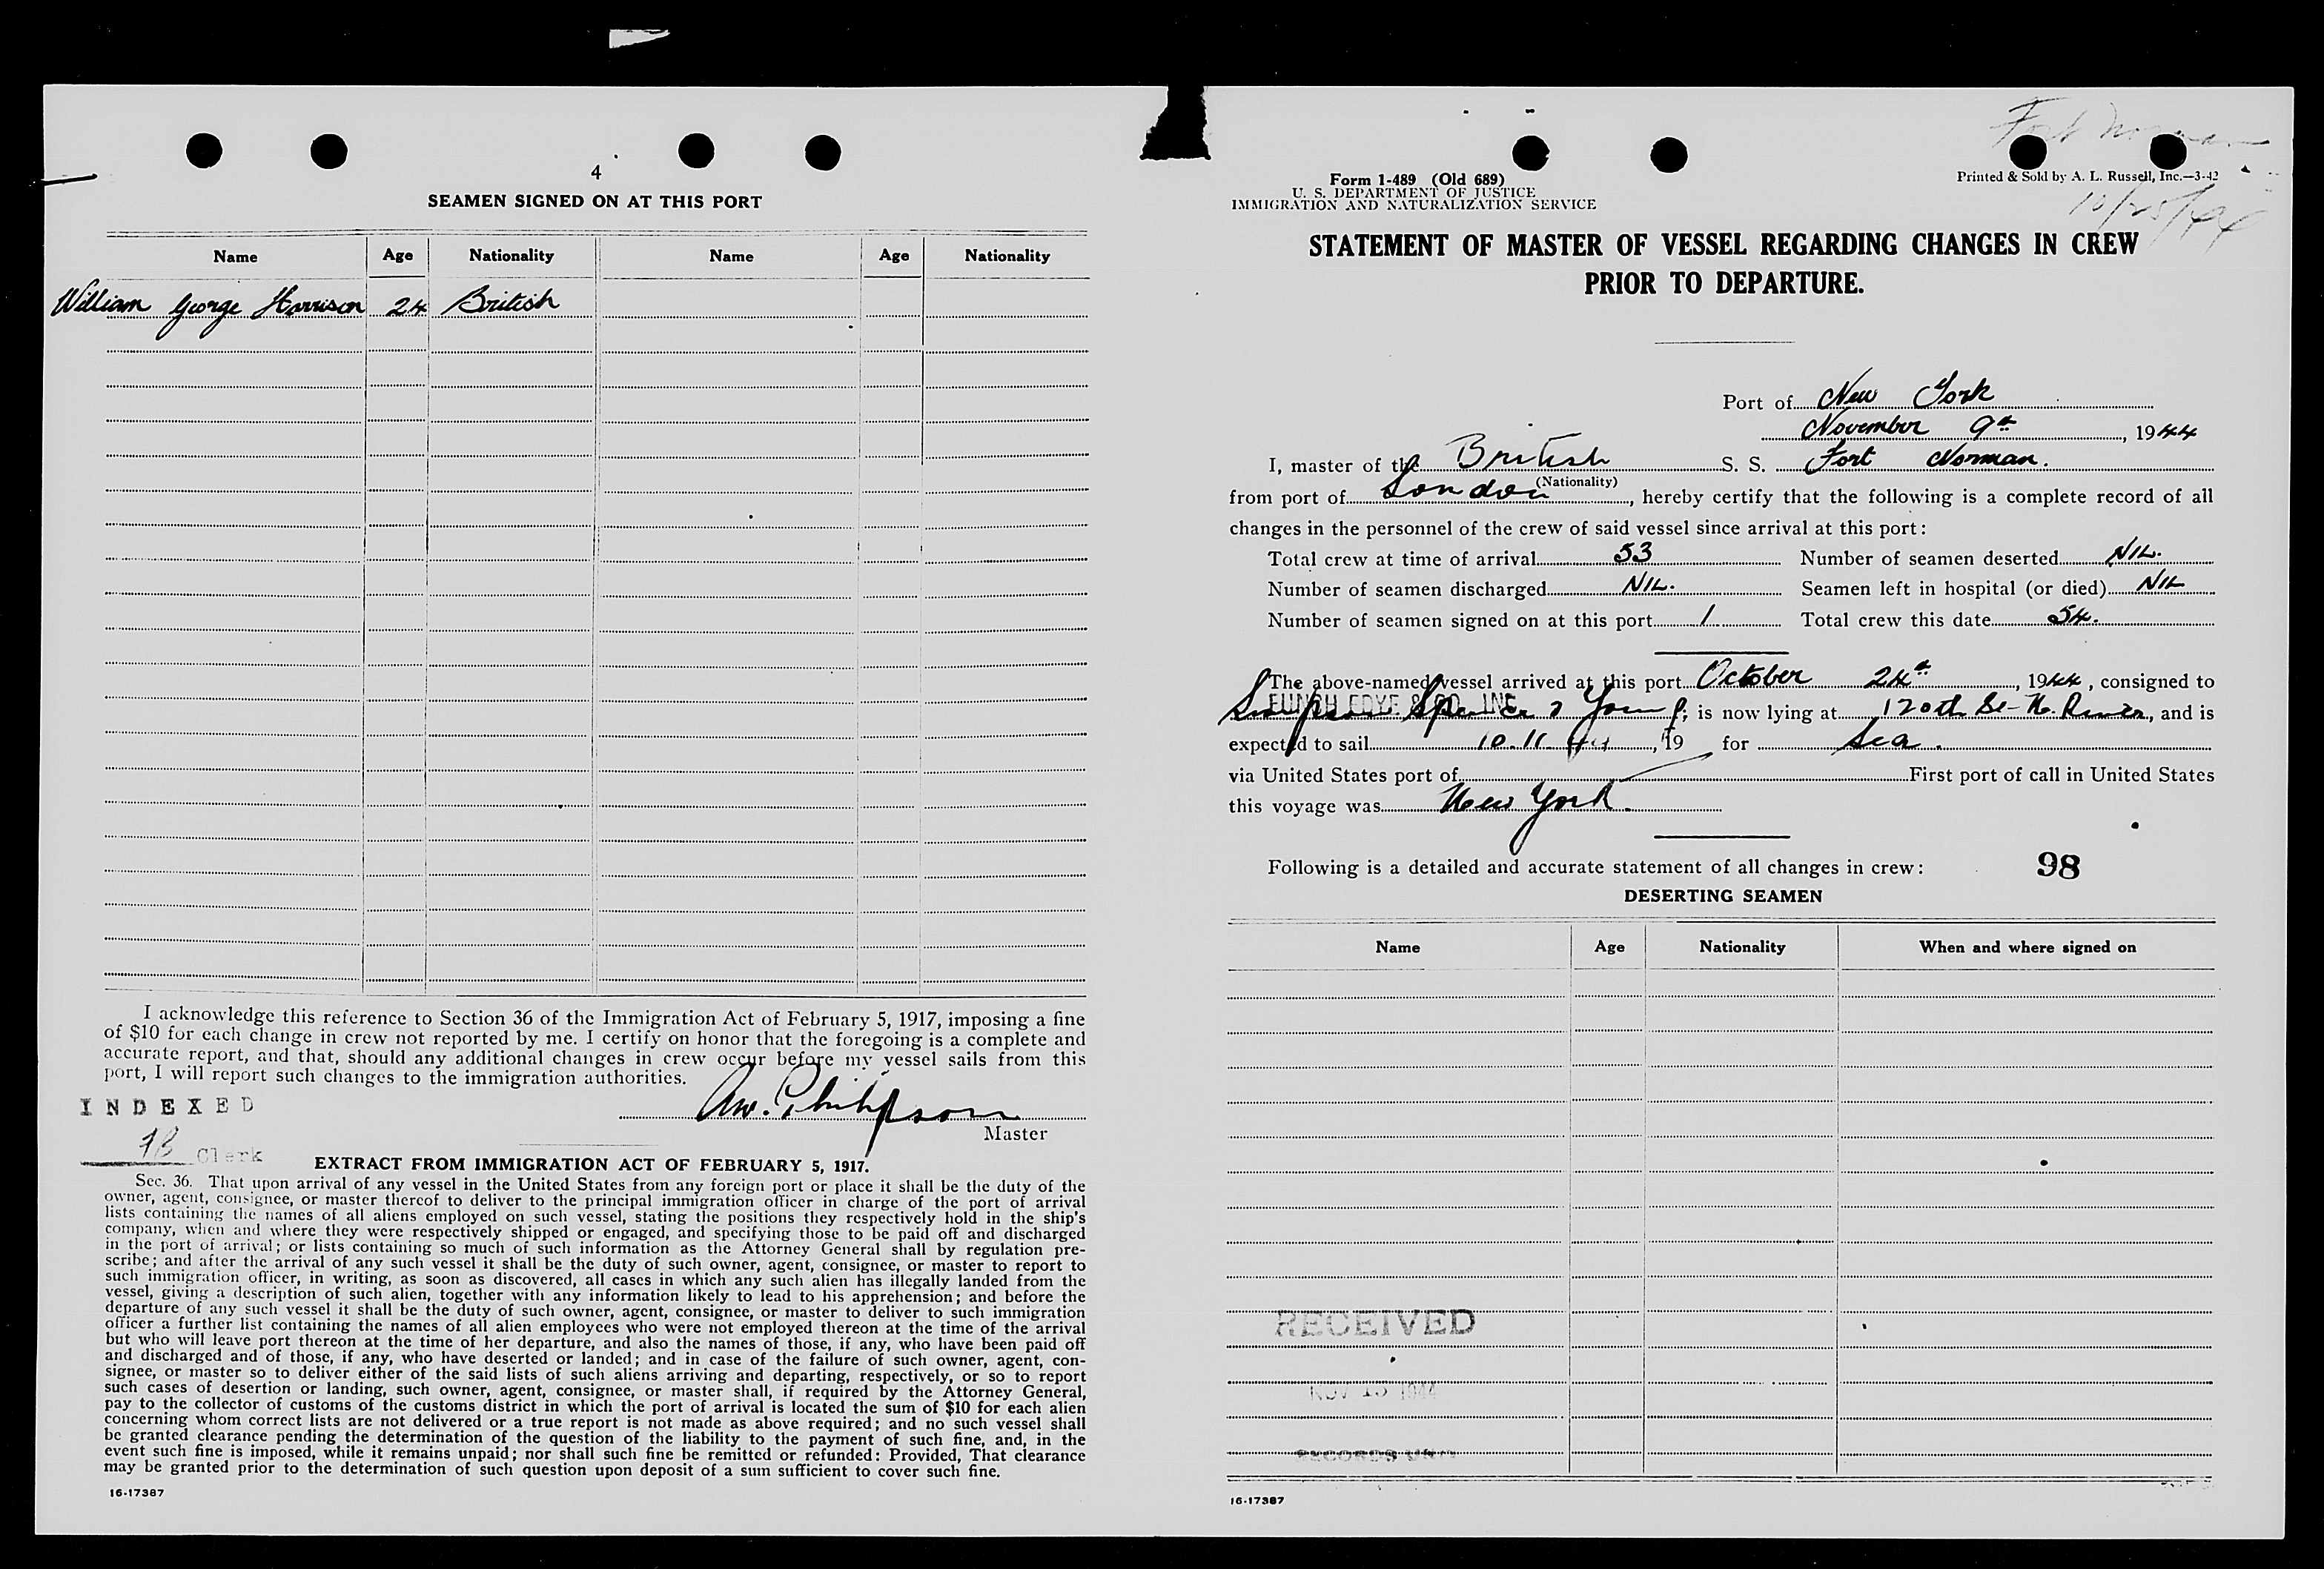 4
SEAMEN SIGNED ON AT THIS PORT
Name Age Nationality Name Age Nationality
William George Harrison 24 British
I acknowledge this reference to Section 36 of the Immigration Act of February 5, 1917, imposing a fine
of $10 for each change in crew not reported by me. I certify on honor that the foregoing is a complete and
accurate report, and that, should any additional changes in crew occur before my vessel sails from this
port, I will report such changes to the immigration authorities.
INDEXED
Aw. Philipson
Master
Clerk
EXTRACT FROM IMMIGRATION ACT OF FEBRUARY 5, 1917.
Sec. 36. That upon arrival of any vessel in the United States from any foreign port or place it shall be the duty of the
owner, agent, consignee, or master thereof to deliver to the principal immigration officer in charge of the port of arrival
lists containing the names of all aliens employed on such vessel, stating the positions they respectively hold in the ship's
company, when and where they were respectively shipped or engaged, and specifying those to be paid off and discharged
in the port of arrival; or lists containing so much of such information as the Attorney General shall by regulation pre-
scribe; and after the arrival of any such vessel it shall be the duty of such owner, agent, consignee, or master to report to
such immigration officer, in writing, as soon as discovered, all cases in which any such alien has illegally landed from the
vessel, giving a description of such alien, together with any information likely to lead to his apprehension; and before the
departure of any such vessel it shall be the duty of such owner, agent, consignee, or master to deliver to such immigration
officer a further list containing the names of all alien employees who were not employed thereon at the time of the arrival
but who will leave port thereon at the time of her departure, and also the names of those, if any, who have been paid off
and discharged and of those, if any, who have deserted or landed; and in case of the failure of such owner, agent, con-
signee, or master so to deliver either of the said lists of such aliens arriving and departing, respectively, or so to report
such cases of desertion or landing, such owner, agent, consignee, or master shall, if required by the Attorney General,
pay to the collector of customs of the customs district in which the port of arrival is located the sum of $10 for each alien
concerning whom correct lists are not delivered or a true report is not made as above required; and no such vessel shall
be granted clearance pending the determination of the question of the liability to the payment of such fine, and, in the
event such fine is imposed, while it remains unpaid; nor shall such fine be remitted or refunded: Provided, That clearance
may be granted prior to the determination of such question upon deposit of a sum sufficient to cover such fine.
16-17387
Fort Norman
Form 1-489 (Old 689)
U. S. DEPARTMENT OF JUSTICE
IMMIGRATION AND NATURALIZATION SERVICE
Printed & Sold by A. L. Russell, Inc.—3-42
10/25/44
STATEMENT OF MASTER OF VESSEL REGARDING CHANGES IN CREW
PRIOR TO DEPARTURE.
Port of New York
November 9th, 1944
I, master of the British S. S. Fort Norman.
(Nationality)
from port of London, hereby certify that the following is a complete record of all
changes in the personnel of the crew of said vessel since arrival at this port:
Total crew at time of arrival 53 Number of seamen deserted NIL.
Number of seamen discharged NIL. Seamen left in hospital (or died) NIL
Number of seamen signed on at this port 1 Total crew this date 54.
The above-named vessel arrived at this port October 24th, 1944, consigned to
FUNCH EDYE & CO. INC.
Simpson Spence & Young, is now lying at 120th St-N. River, and is
expected to sail 10.11.44, 19 for Sea.
via United States port of First port of call in United States
this voyage was New York.
Following is a detailed and accurate statement of all changes in crew: 98
DESERTING SEAMEN
Name Age Nationality When and where signed on
RECEIVED
NOV 13 1944
RECORDS UNIT
16-17387